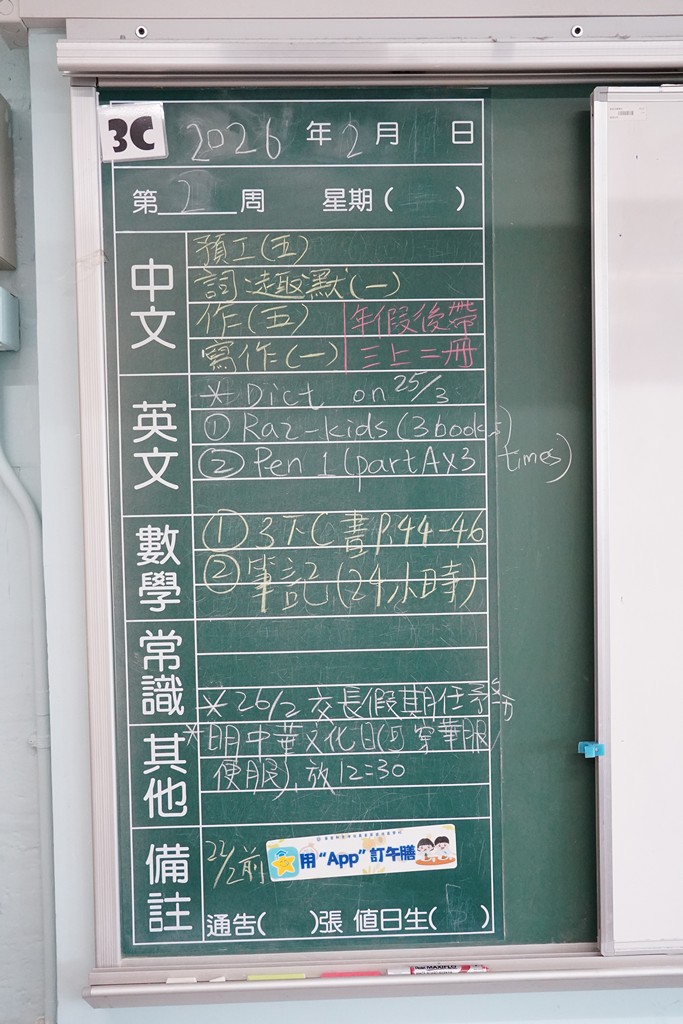 3C
2026 年 2 月 日
第 2 周 星期( )
中文
預工(五)
詞遠趣默(一)
作(五) 年假後帶
寫作(一) 三上二冊
英文
* Dict on 25/3
① Raz-kids (3 books)
② Pen 1 (part A x3 times)
數學
① 3下C書 P.44-46
② 筆記(24小時)
常識
* 26/2 交長假期任務
其他
* 明中華文化日(穿華服
便服), 放12:30
備註
22/2前
用“App”訂午膳
通告( )張 值日生( )